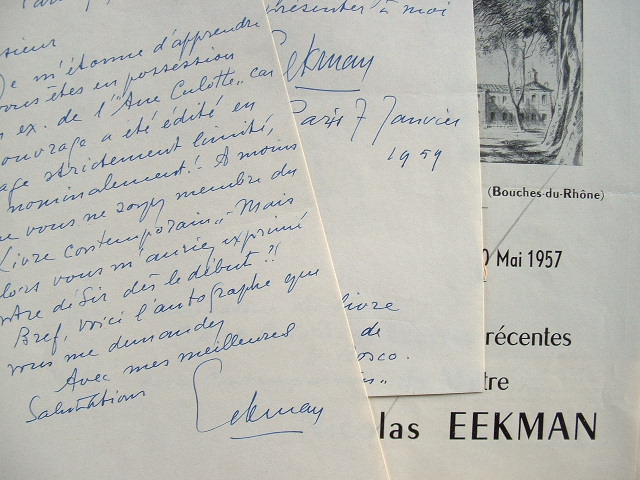 sieur
Je m'étonne d'apprendre
vous êtes en possession
ex. de l'"Ane Culotte", car
ouvrage a été édité en
age strictement limité,
nominalement! A moins
vous ne soyez membre du
Livre Contemporain". Mais
alors vous m'auriez exprimé
votre désir dès le début?!
Bref, voici l'autographe que
vous me demandez
Avec mes meilleures
Salutations
Eekman
présenter à moi
Eekman
Paris 7 Janvier
1959
livre
de
osco.
(Bouches-du-Rhône)
0 Mai 1957
récentes
tre
las EEKMAN